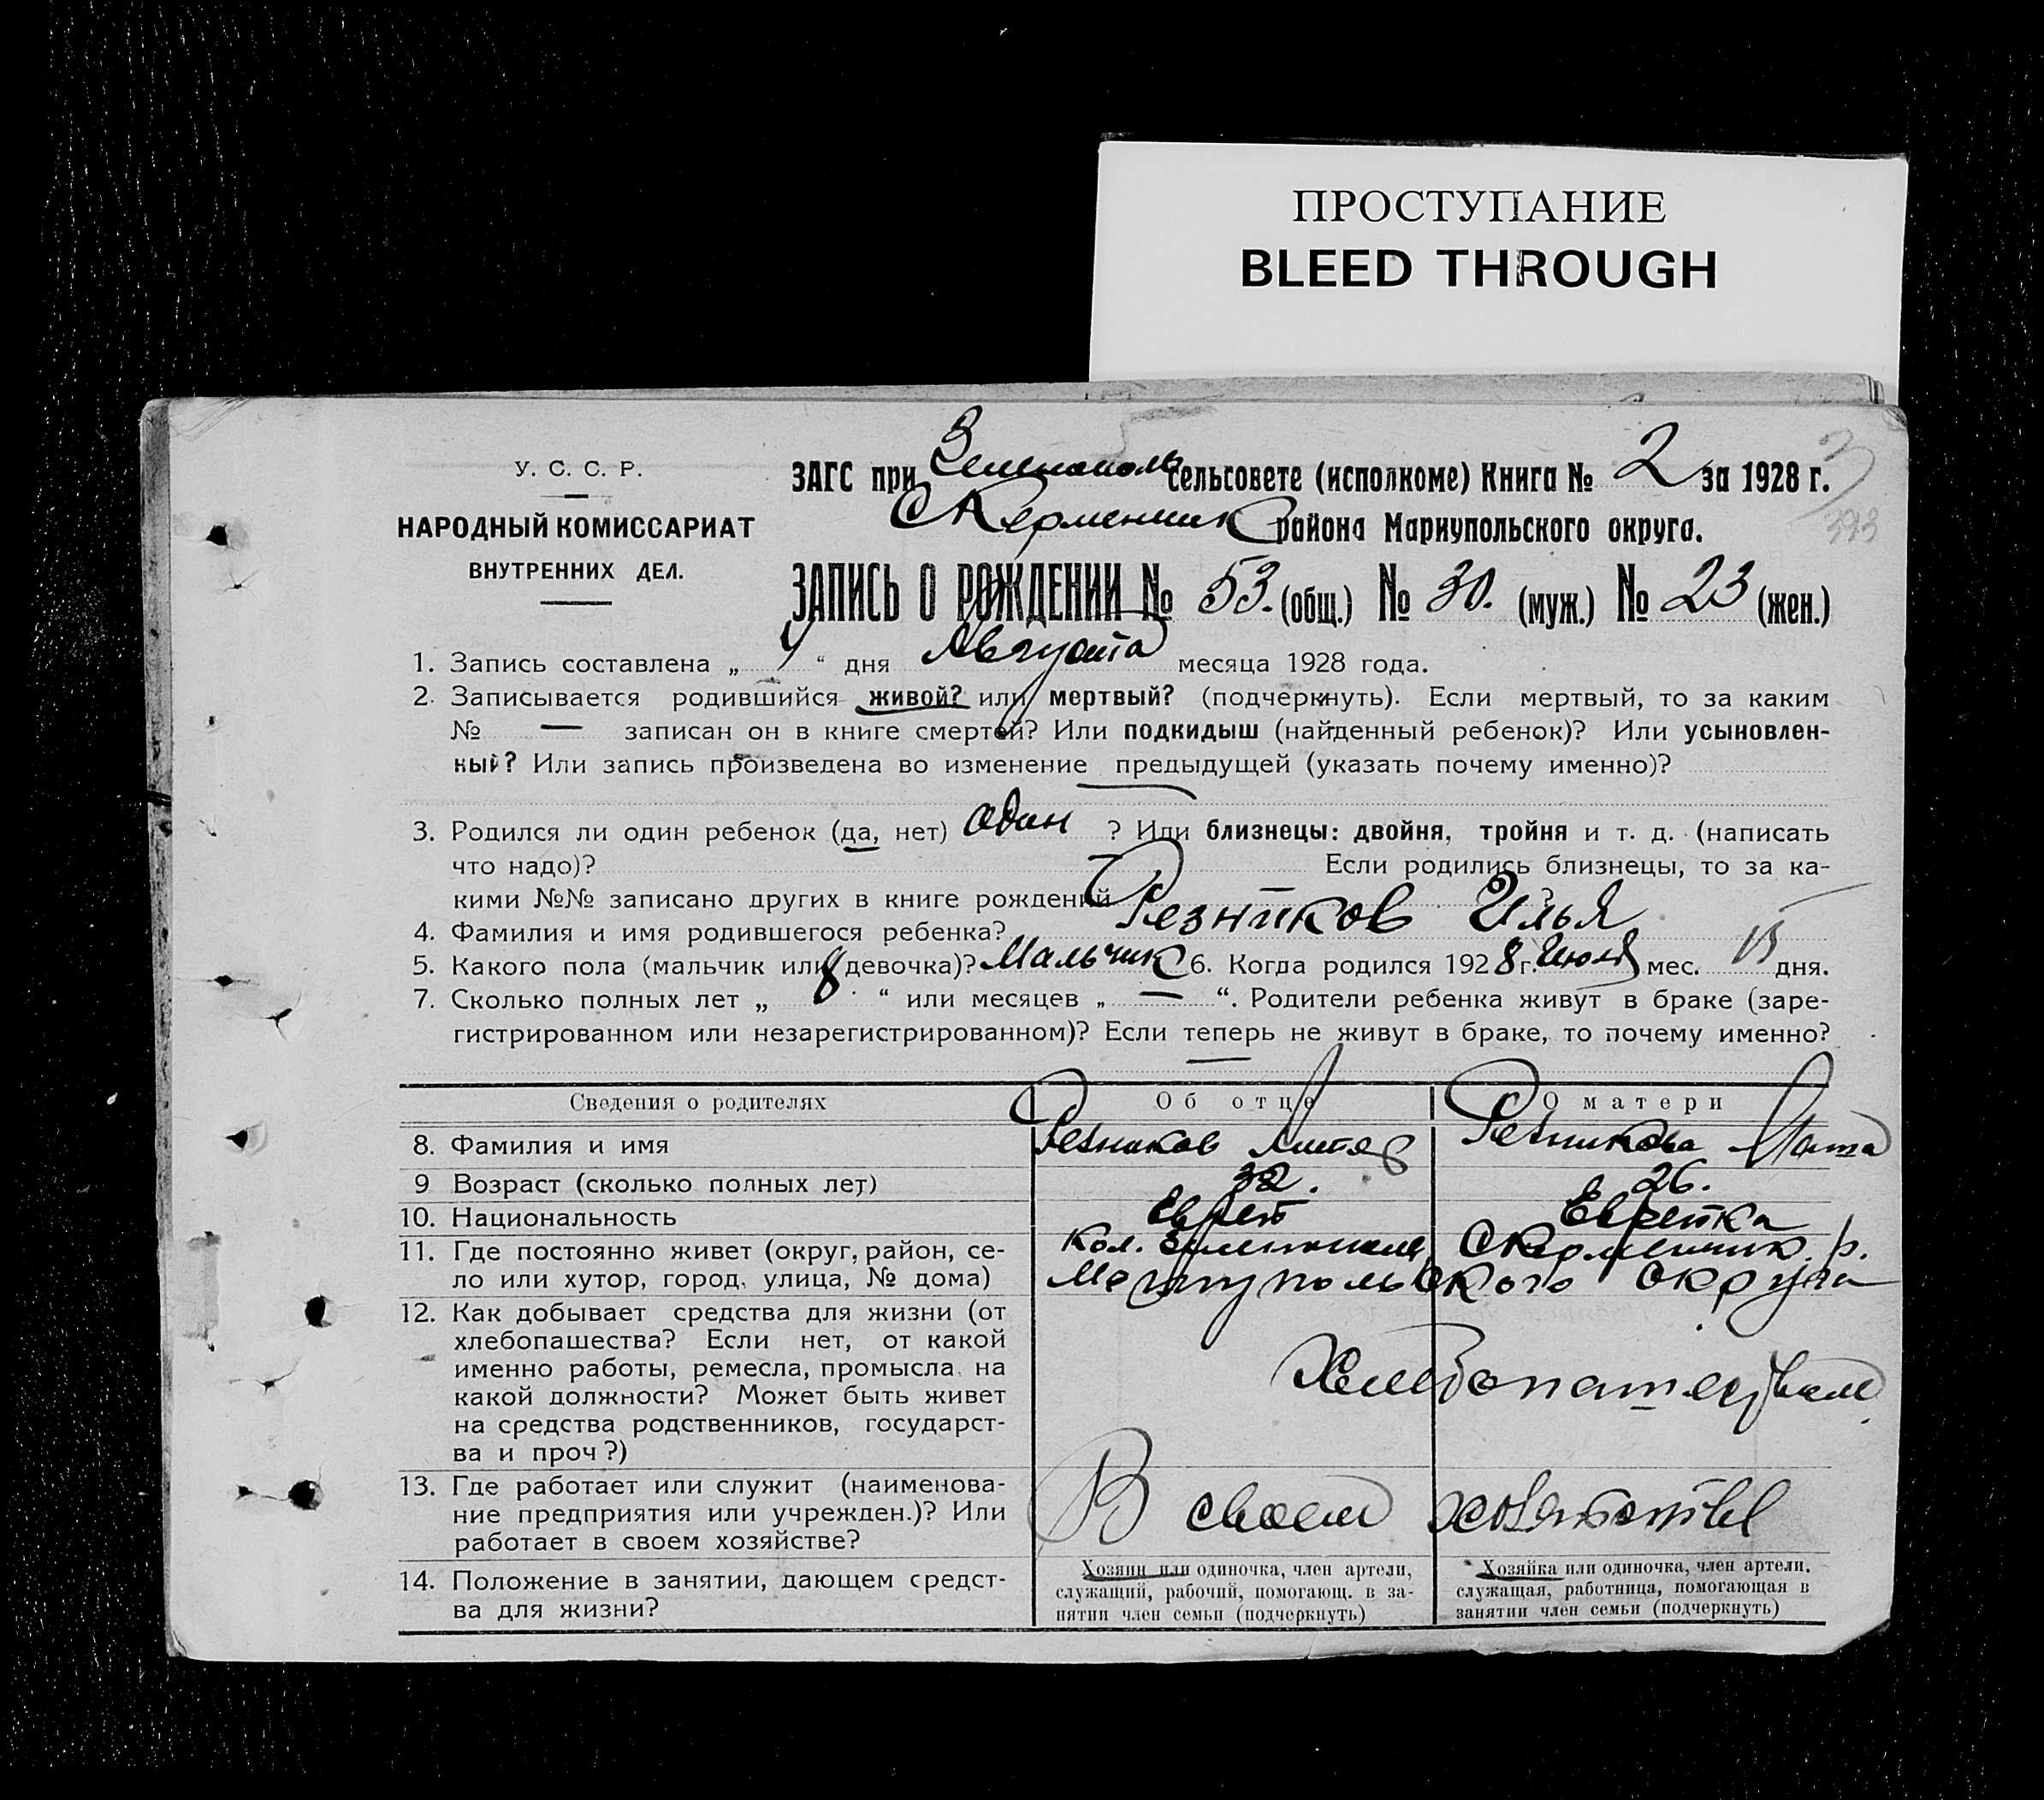 ПРОСТУПАНИЕ
BLEED THROUGH
У. С. С. Р.
НАРОДНЫЙ КОМИССАРИАТ
ВНУТРЕННИХ ДЕЛ.
ЗАГС при Зеленополь сельсовете (исполкоме) Книга № 2 за 1928 г.
СКерменчик района Мариупольского округа.
ЗАПИСЬ О РОЖДЕНИИ № 53. (общ.) № 30. (муж.) № 23 (жен.)
1. Запись составлена „ “ дня Августа месяца 1928 года.
2. Записывается родившийся живой? или мертвый? (подчеркнуть). Если мертвый, то за каким
№ — записан он в книге смертей? Или подкидыш (найденный ребенок)? Или усыновлен-
ный? Или запись произведена во изменение предыдущей (указать почему именно)?
3. Родился ли один ребенок (да, нет) один ? Или близнецы: двойня, тройня и т. д. (написать
что надо)? Если родились близнецы, то за ка-
кими №№ записано других в книге рождений — ?
4. Фамилия и имя родившегося ребенка? Резников Илья
5. Какого пола (мальчик или девочка)? Мальчик 6. Когда родился 1928 г. Июля мес. 15 дня.
7. Сколько полных лет „ 8 “ или месяцев „ — “. Родители ребенка живут в браке (заре-
гистрированном или незарегистрированном)? Если теперь не живут в браке, то почему именно?
—
Сведения о родителях Об отце О матери
8. Фамилия и имя Резников Резникова
9 Возраст (сколько полных лет) 32. 26.
10. Национальность Еврей Еврейка
11. Где постоянно живет (округ, район, се- Кол. Зеленополь, СКерменчик. р.
ло или хутор, город, улица, № дома) Мариупольского округа
12. Как добывает средства для жизни (от
хлебопашества? Если нет, от какой
именно работы, ремесла, промысла, на Хлебопашеством
какой должности? Может быть живет
на средства родственников, государст-
ва и проч?)
13. Где работает или служит (наименова-
ние предприятия или учрежден.)? Или В своем хозяйстве
работает в своем хозяйстве?
14. Положение в занятии, дающем средст-
ва для жизни?
Хозяин или одиночка, член артели,
служащий, рабочий, помогающ. в за-
нятии член семьи (подчеркнуть)
Хозяйка или одиночка, член артели.
служащая, работница, помогающая в
занятии член семьи (подчеркнуть)